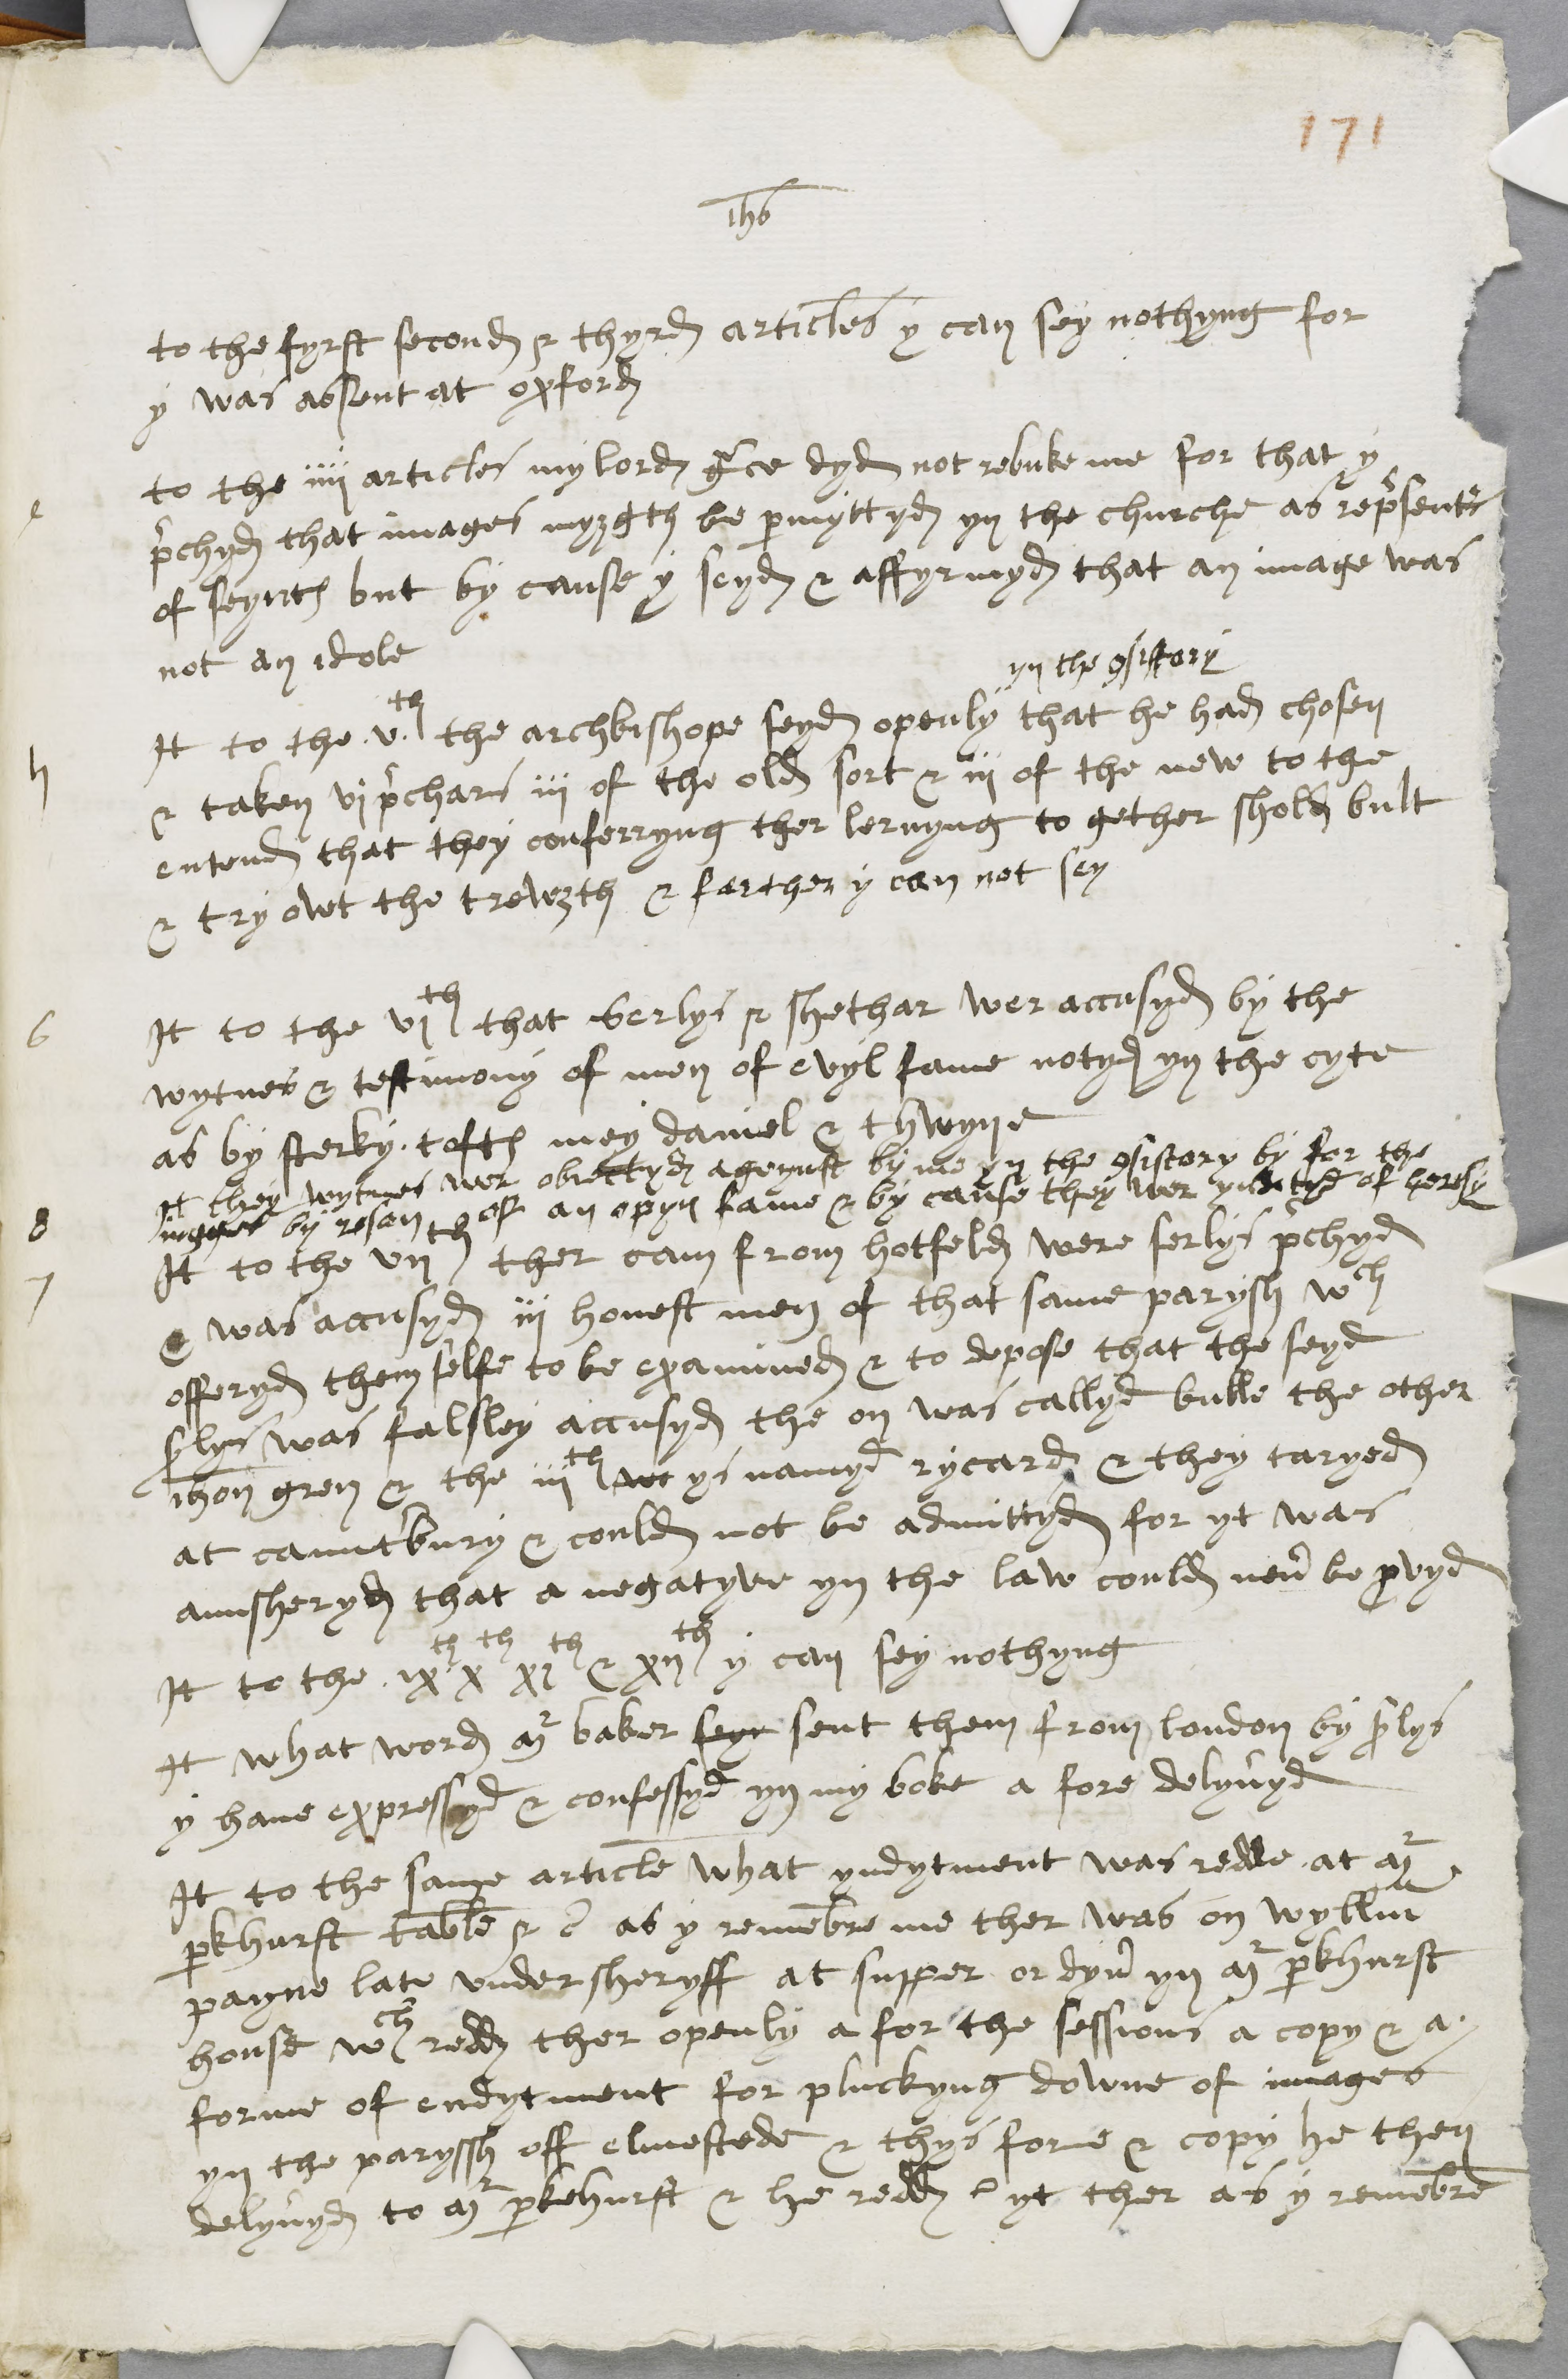 171
ihs
to the fyrst second & thyrd articles y can sey nothyng for
y was absent at oxford
to the iiii articles my lord grce dyd not rebuke me for that y
pchyd that images myzgth be pmyttyd yn the churche as repsents
of seynts but by cause y seyd & affyrmyd that an image was
not an idole
yn the csistory
It to the .v.th the archbishope seyd openly that he had chosen
& taken vi pchars iii of the old sort & iii of the new to the
entend that they conferryng ther lernyng to gether shold bult
& try owt the trewzth & farther y can not sey
6
It to the vith that serlys & shethar wer accusyd by the
wytnes & testimony of men of evyl fame notyd yn the cyte
as by sterky. tofts mey daniel & thwyne
It they wytnes wer obiectyd agenst by me yn the csistory by for the
by reson of an opyn fame & by cause they wer yndytyd of heresy
8
It to the viith ther cam from hotfeld were serlys pchyd
7
& was accusyd iii honest men of that same parysh wch
offeryd them selfe to be examined & to depose that the seyd
srlys was falsley accusyd the on was callyd bulle the other
ihon gren & the iiith ys namyd rycard & they taryed
at canntbury & could not be admittyd for yt was
annsheryd that a negatyve yn the law could nev be pvyd
It to the .ixth xth xith & xiith y can sey nothyng
It what word mr baker seyt sent them from london by srlys
y have expressyd & confessyd yn my boke a fore delyvyd
It to the same article what yndytment was redde at mr
pkhurst table & c as y remebre me ther was on wyllm
payne late undersheryff at supper or dyn yn mr pkhurst
house wch redd ther openly a for the sessions a copy & a
forme of endytment for pluckyng downe of images
yn the paryssh off elmestede & thys forme & copy he then
delyvyd to mr pkehurst & he redd yt ther as y remebre